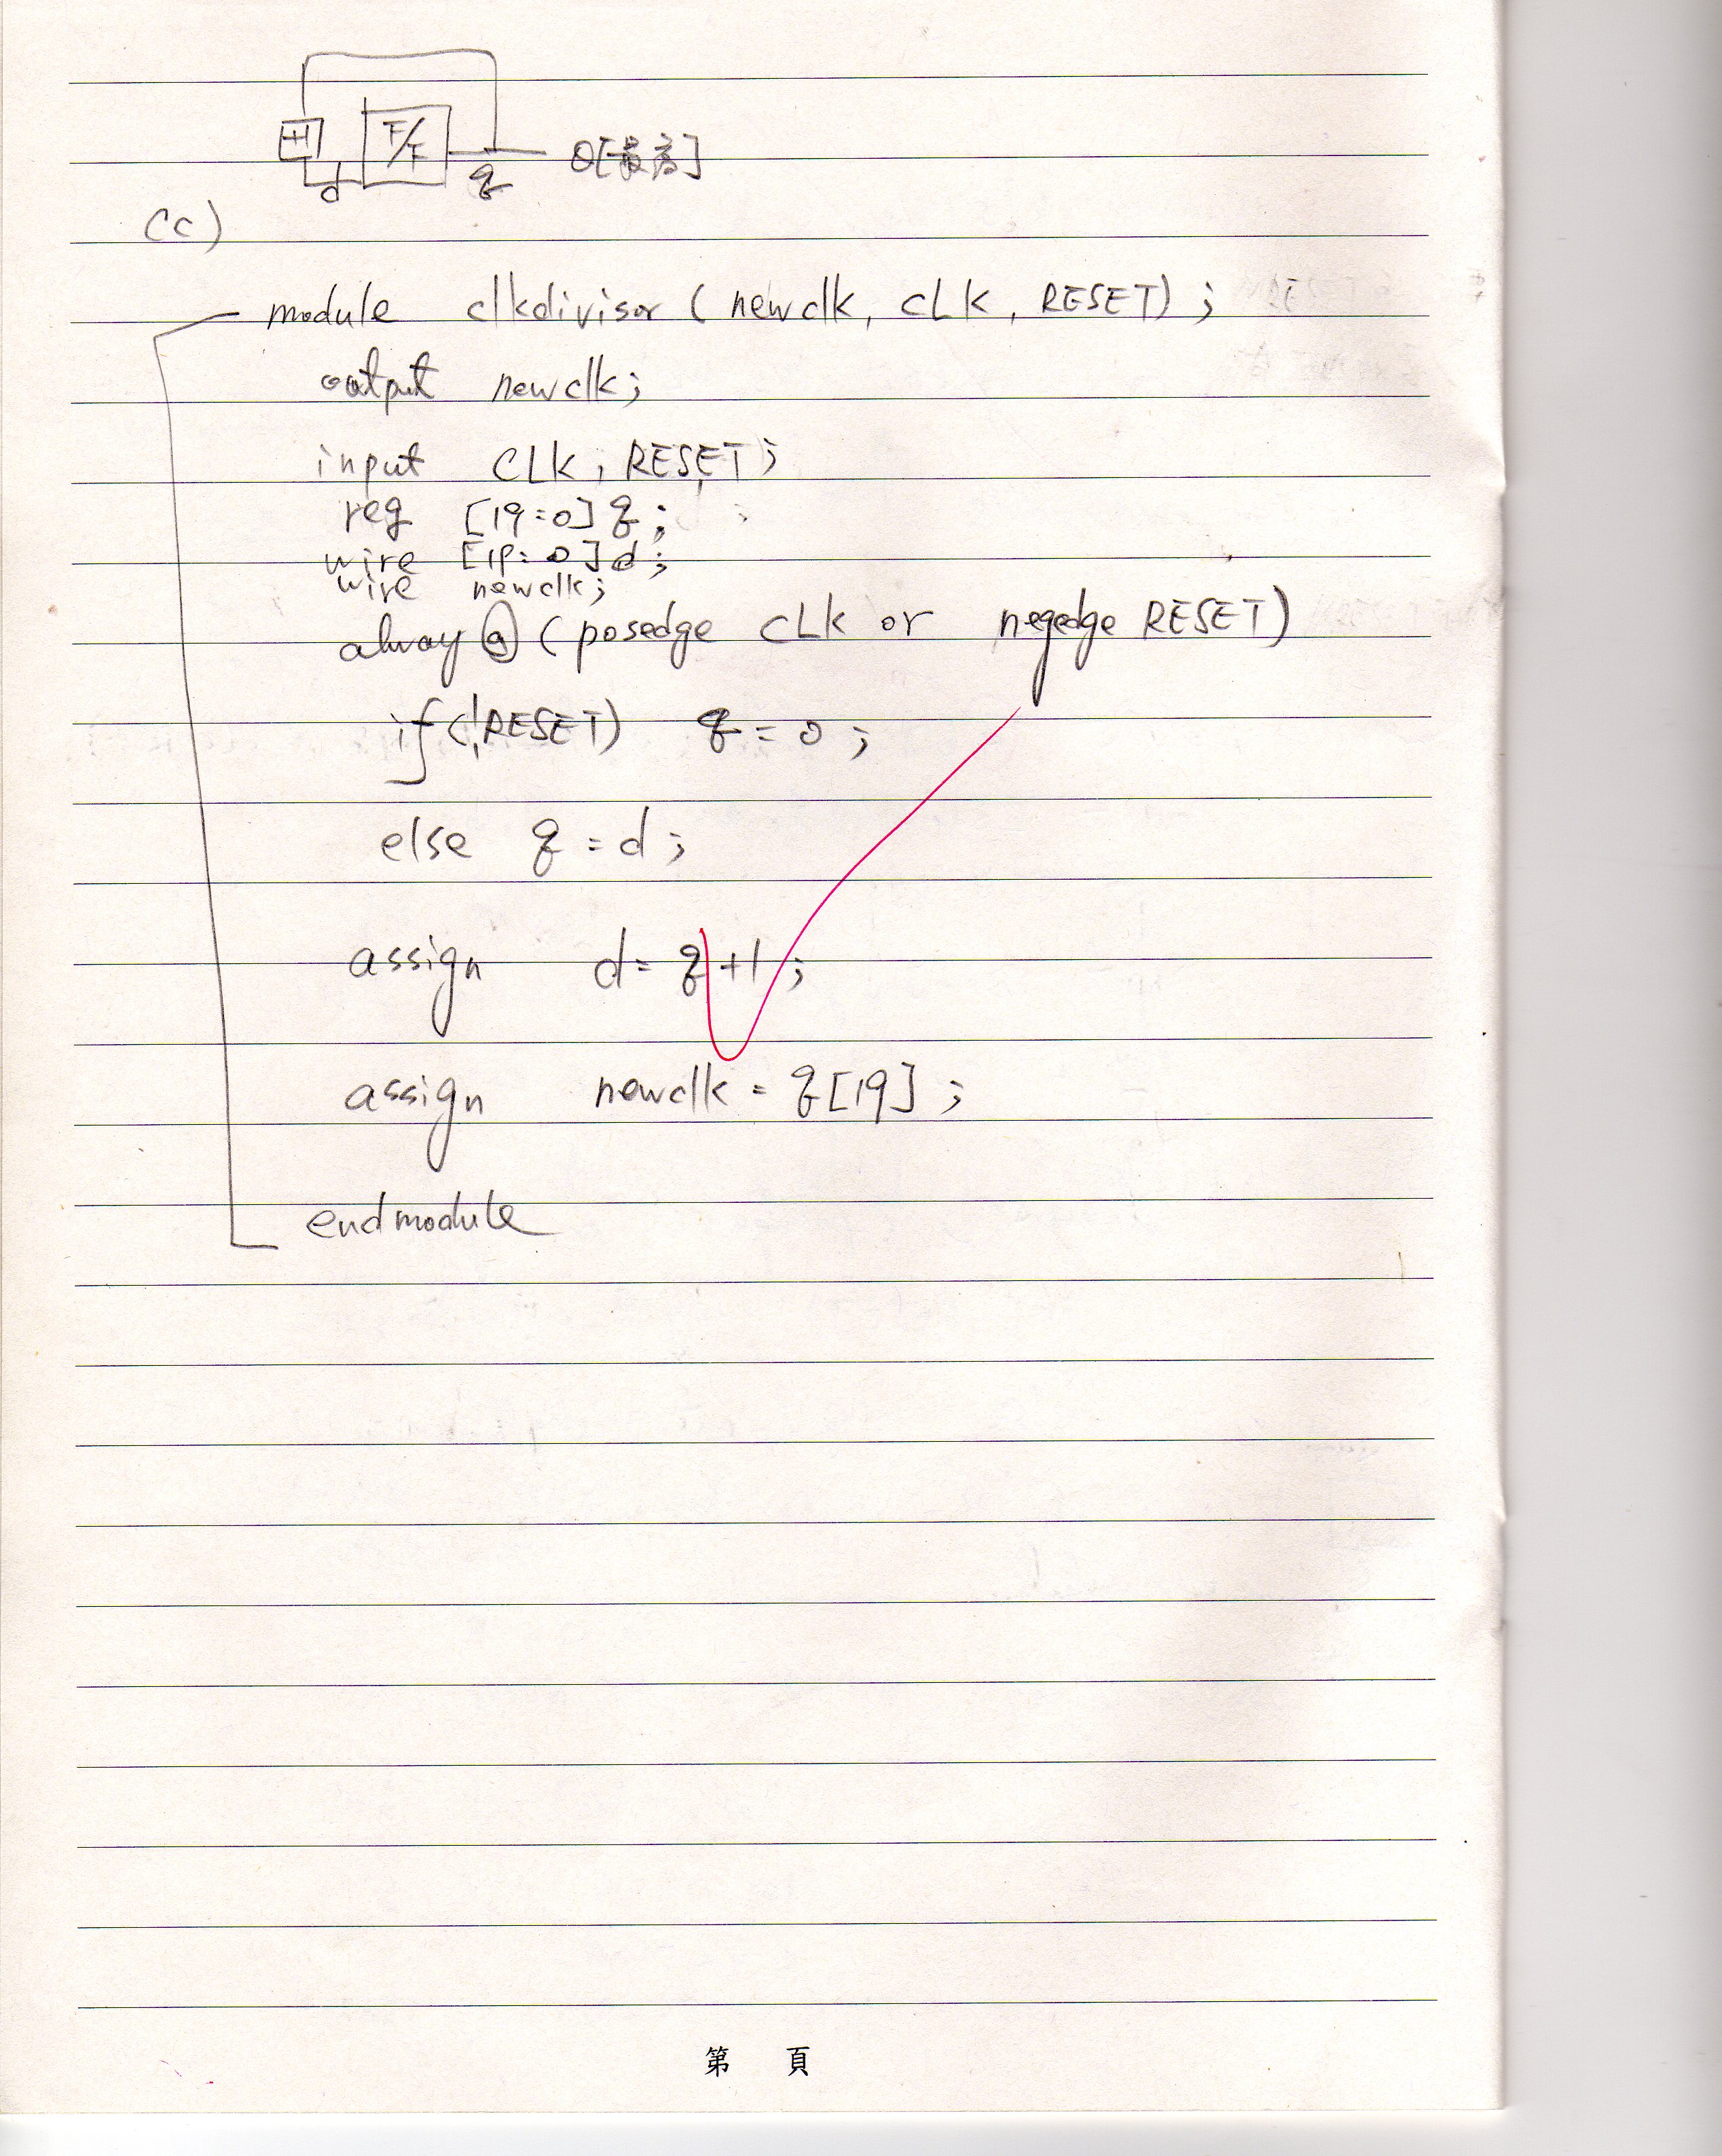 +1 F/F Q[最高]
d q
(c)
module clkdivisor (newclk, CLK, RESET);
output newclk;
input CLK, RESET;
reg [19:0] q;
wire [19:0] d;
wire newclk;
alway @ (posedge CLK or negedge RESET)
if (!RESET) q = 0;
else q = d;
assign d = q+1;
assign newclk = q[19];
endmodule
第 頁